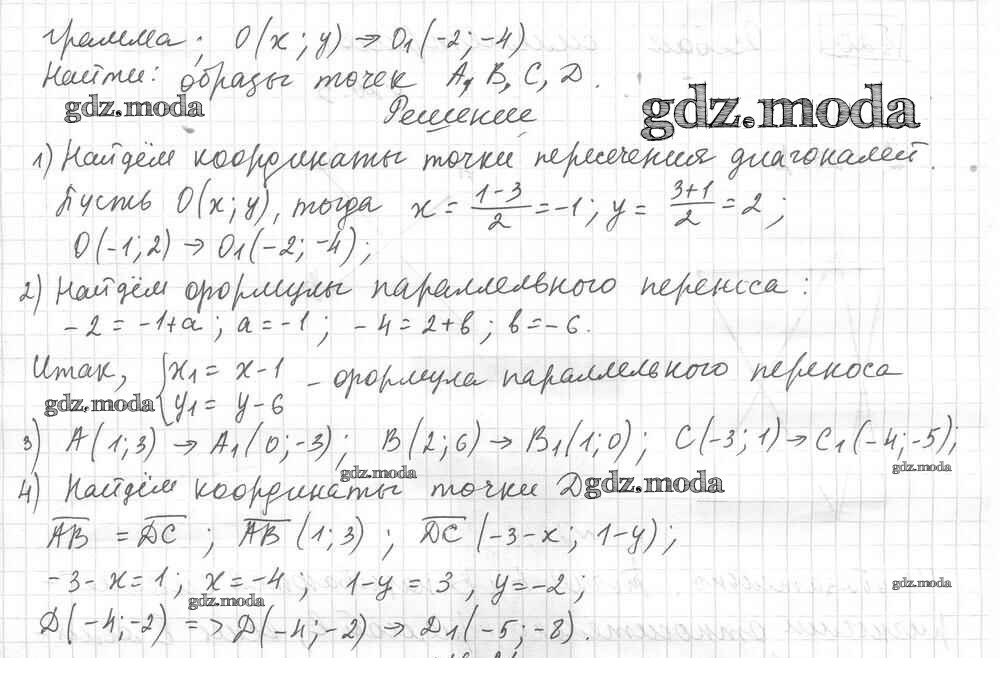 грамма; O(x; y) → O1(-2; -4)
Найти: образы точек A, B, C, D.
gdz.moda
Решение
gdz.moda
1) Найдём координаты точки пересечения диагоналей.
Пусть O(x; y), тогда x = (1-3)/2 = -1; y = (3+1)/2 = 2;
O(-1; 2) → O1(-2; -4);
2) Найдём формулы параллельного переноса:
-2 = -1+a; a = -1; -4 = 2+b; b = -6.
Итак, { x1 = x-1 - формула параллельного переноса
gdz.moda y1 = y-6
3) A(1; 3) → A1(0; -3); B(2; 6) → B1(1; 0); C(-3; 1) → C1(-4; -5);
gdz.moda
gdz.moda
4) Найдём координаты точки D gdz.moda
AB = DC; AB(1; 3); DC(-3-x; 1-y);
-3-x = 1; x = -4; 1-y = 3, y = -2;
gdz.moda
gdz.moda
D(-4; -2) => D(-4; -2) → D1(-5; -8).